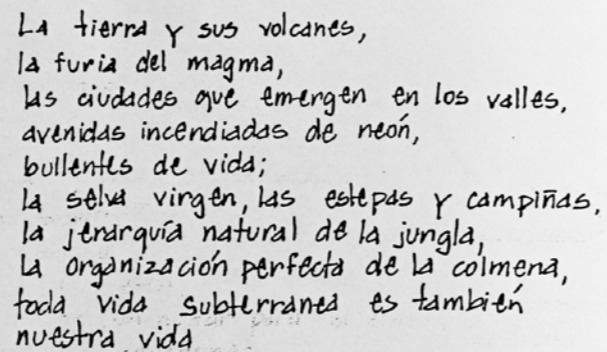 La tierra y sus volcanes,
la furia del magma,
las ciudades que emergen en los valles,
avenidas incendiadas de neón,
bullentes de vida;
la selva virgen, las estepas y campiñas,
la jerarquía natural de la jungla,
La organización perfecta de la colmena,
toda vida subterranea es también
nuestra vida